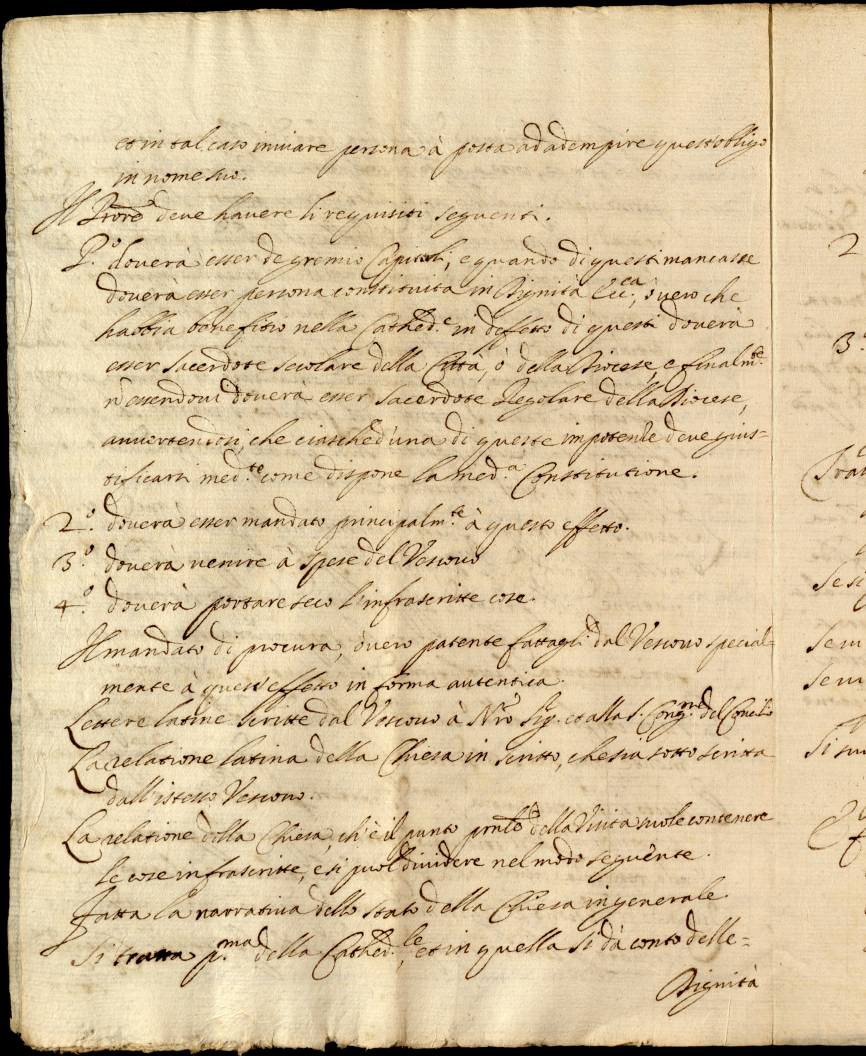 et in tal caso inviare persona à posta ad adempire quest'obligo
in nome suo.
Il Prore deve havere li requisiti seguenti.
P.º doverà esser de gremio Capituli, e quando di questi mancasse
doverà esser persona constituita in Dignità Ecc.ca, ò vero che
habbia benefitio nella Cathed.e in deffetto di questi doverà
esser sacerdote secolare della Città, ò della Diocese, e finalm.te
n'essendovi doverà esser sacerdote Regolare della Diocese,
avvertendosi, che ciasched'una di queste impotenze deve gius=
tificarsi med.te come dispone la med.a Constitutione.
2.º doverà esser mandato principalm.te à questo effetto.
3.º doverà venire à spese del Vescovo
4.º doverà portare seco l'infrascritte cose.
Il mandato di procura, ò vero patente fattagli dal Vescovo special=
mente à quest'effetto in forma autentica.
Lettere latine scritte dal Vescovo à Nro Sig. et alla S. Cong.ne del Concilio
La relatione latina della Chiesa in scritto, che sia sotto scritta
dall'istesso Vescovo.
La relatione della Chiesa, ch'è il punto pnle della Visita suole contenere
le cose infrascritte, e si può dividere nel modo seguente.
Fatta la narrativa dello stato della Chiesa in generale.
Si tratta p.ma della Cathed.le, et in quella si dà conto delle=
Dignità
2
3.º
Se si